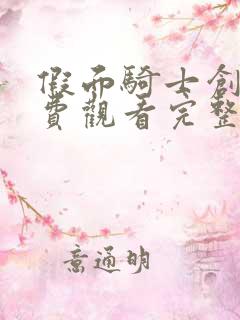 假面騎士創
費觀看完整
意通明